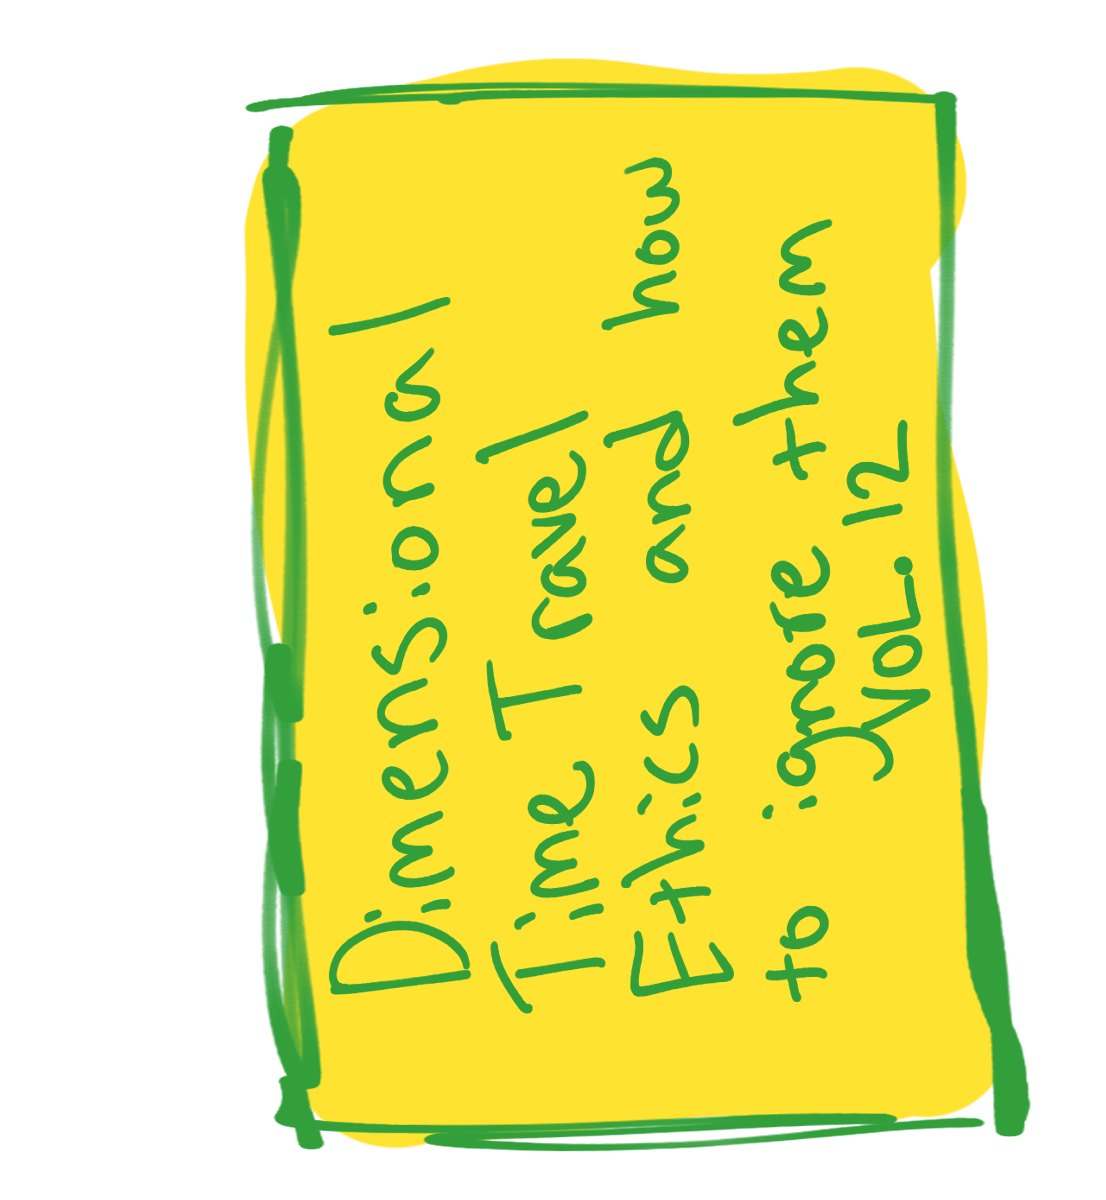 Dimensional
Time Travel
Ethics and how
to ignore them
VOL. 12